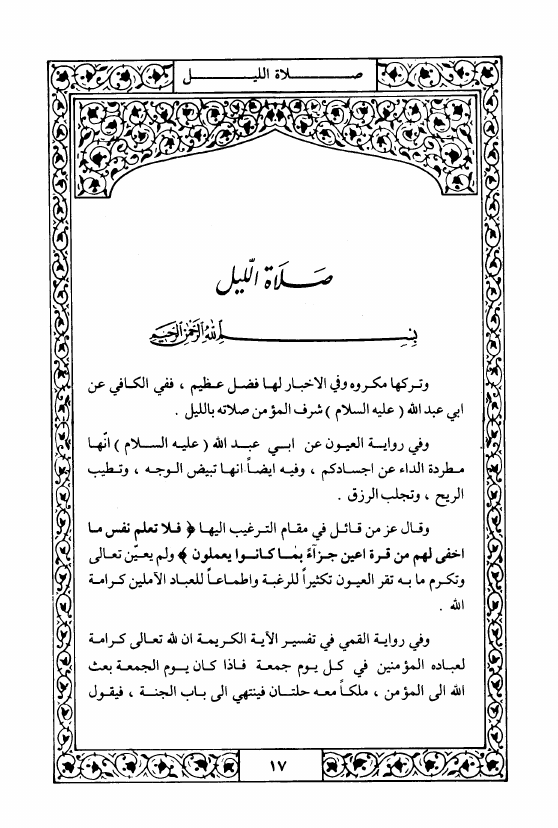 صلاة الليل
صلاة الليل
بسم الله الرحمن الرحيم
وتركها مكروه وفي الاخبار لها فضل عظيم ، ففي الكافي عن
ابي عبد الله ( عليه السلام ) شرف المؤمن صلاته بالليل .
وفي رواية العيون عن ابي عبد الله ( عليه السلام ) انّها
مطردة الداء عن اجسادكم ، وفيه ايضاً انها تبيض الوجه ، وتطيب
الريح ، وتجلب الرزق .
وقال عز من قائل في مقام الترغيب اليها ﴿ فلا تعلم نفس ما
اخفى لهم من قرة اعين جزآءً بما كانوا يعملون ﴾ ولم يعيّن تعالى
وتكرم ما به تقر العيون تكثيراً للرغبة واطماعاً للعباد الآملين كرامة
الله .
وفي رواية القمي في تفسير الآية الكريمة ان لله تعالى كرامة
لعباده المؤمنين في كل يوم جمعة فاذا كان يوم الجمعة بعث
الله الى المؤمن ، ملكاً معه حلتان فينتهي الى باب الجنة ، فيقول
١٧